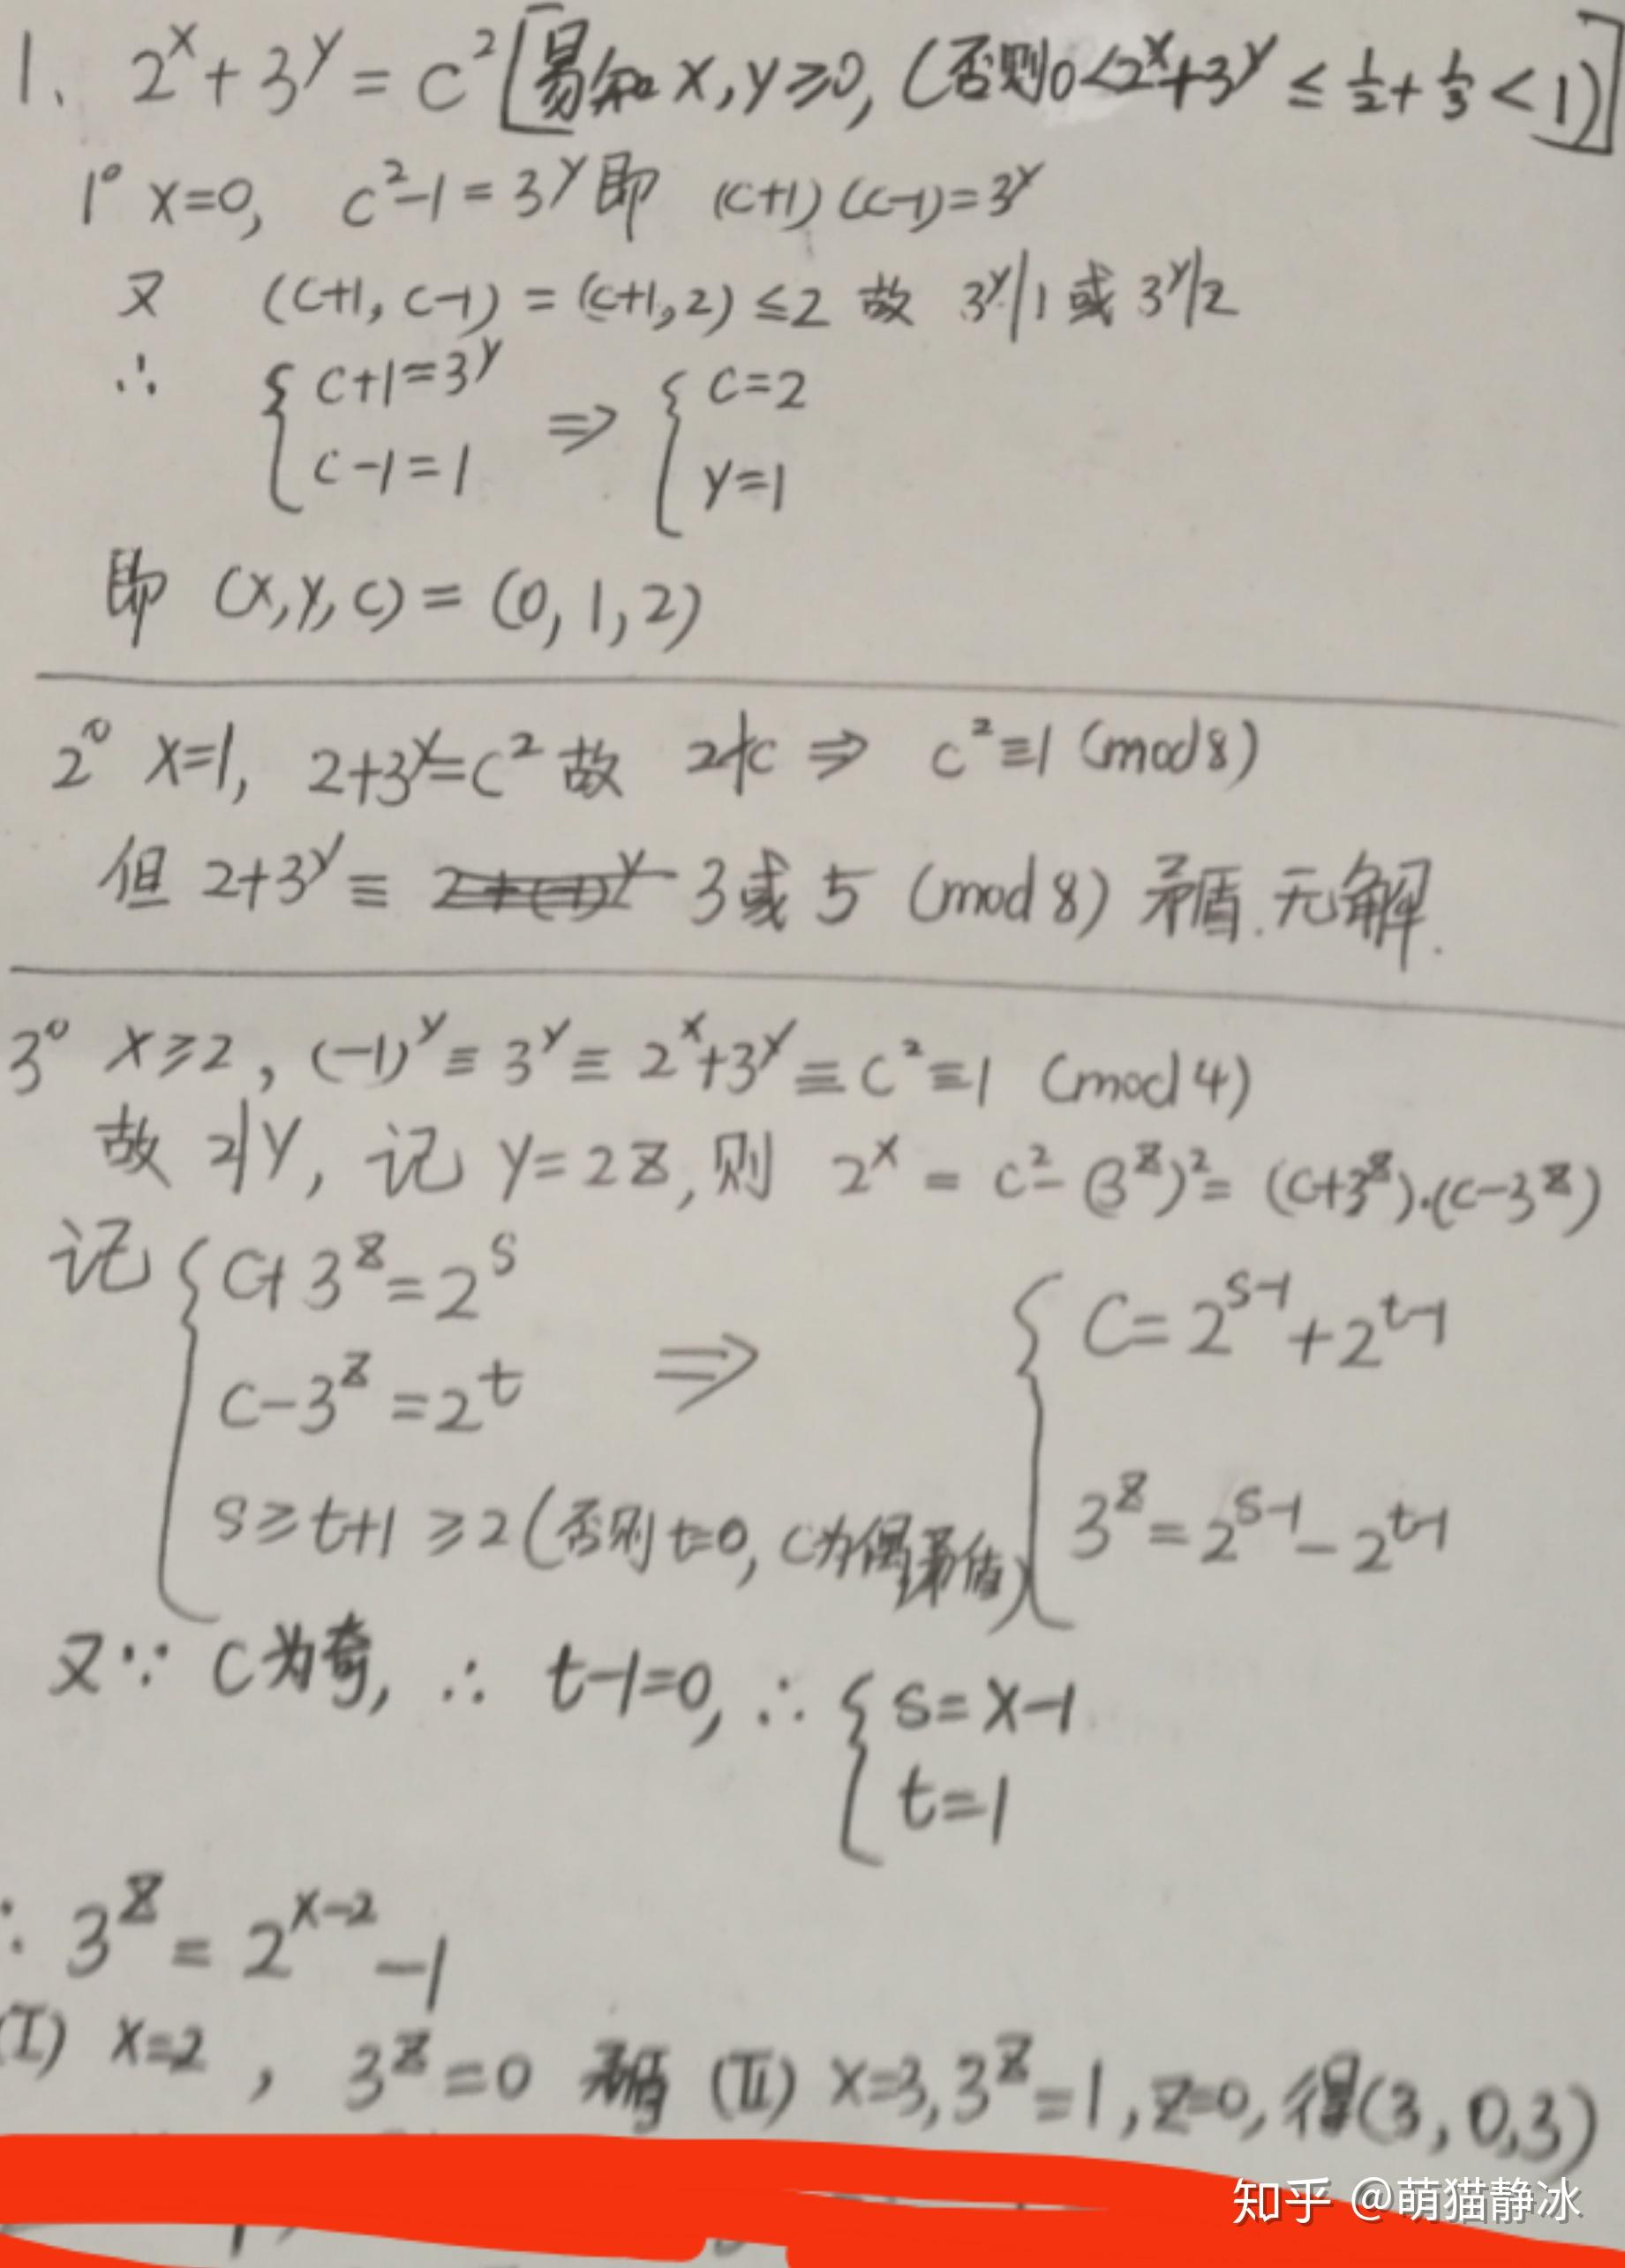 1、2^x+3^y=c^2[易知x,y≥0,(否则0<2^x+3^y≤1/2+1/3<1)]
1° x=0, c^2-1=3^y即 (c+1)(c-1)=3^y
又 (c+1,c-1)=(c+1,2)≤2 故 3^y|1或3^y|2
∴ {c+1=3^y ⇒ {c=2
c-1=1 y=1
即 (x,y,c)=(0,1,2)
2° x=1, 2+3^y=c^2故 2∤c ⇒ c^2≡1 (mod8)
但 2+3^y≡ 3或5 (mod8) 矛盾.无解.
3° x≥2, (-1)^y≡3^y≡2^x+3^y≡c^2≡1 (mod4)
故 2|y, 记 y=2z,则 2^x=c^2-(3^z)^2=(c+3^z)·(c-3^z)
记 {c+3^z=2^s ⇒ {c=2^{s-1}+2^{t-1}
c-3^z=2^t 3^z=2^{s-1}-2^{t-1}
s≥t+1≥2(否则t=0,c为偶矛盾)
又∵ c为奇, ∴ t-1=0, ∴ {s=x-1
t=1
∴ 3^z=2^{x-2}-1
(I) x=2, 3^z=0 矛盾 (II) x=3,3^z=1,z=0,得(3,0,3)
知乎 @萌猫静冰